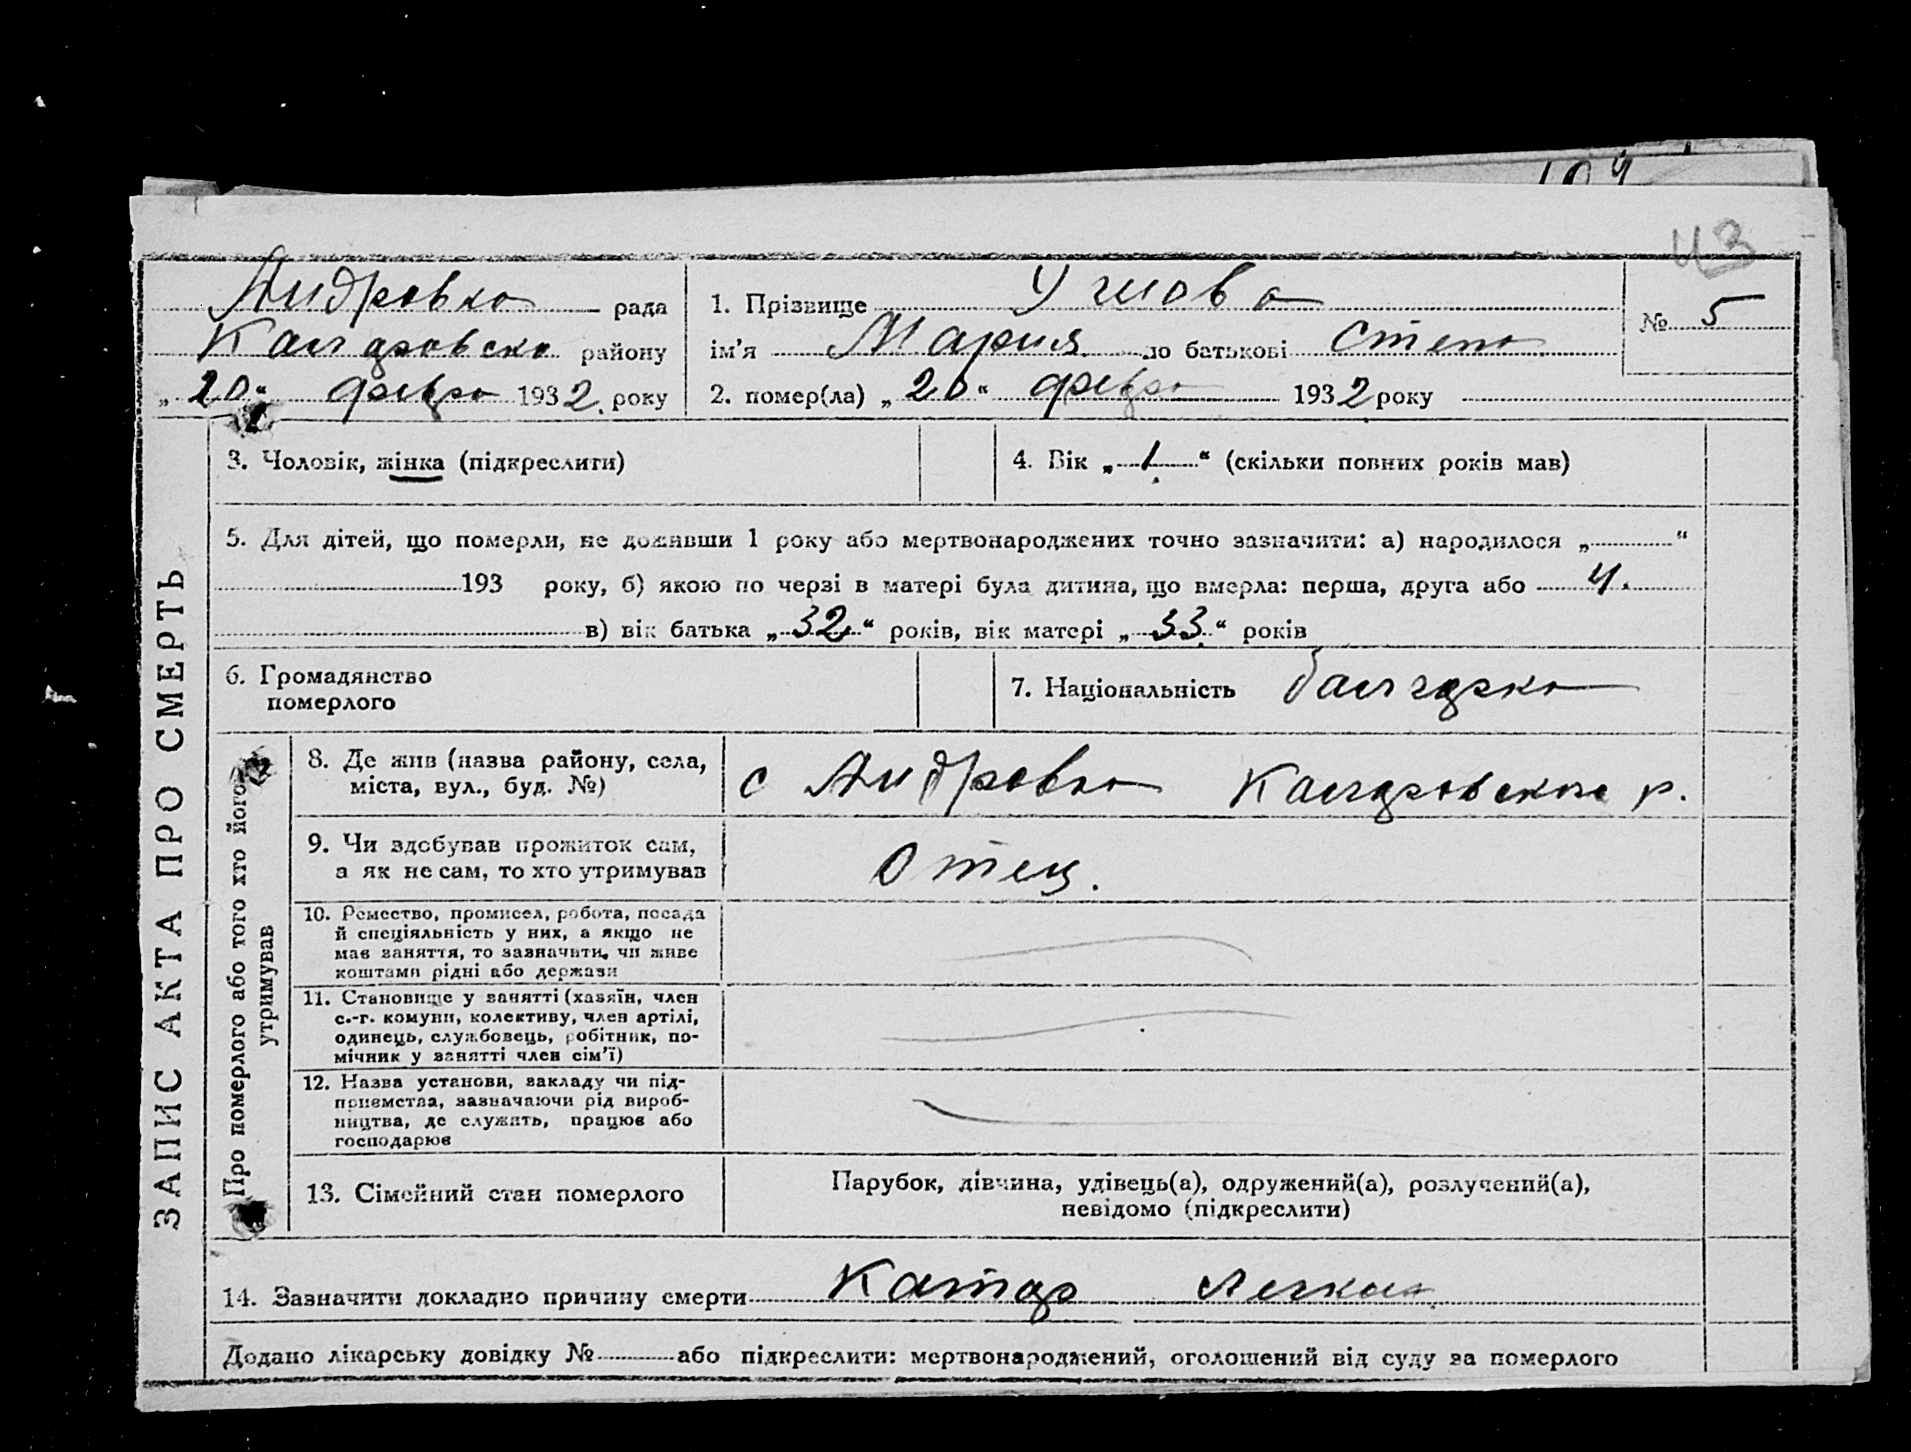 109
43
Андровка рада
Калгаровско району
„20“ февра 1932. року
1. Прізвище
ім’я Мария по батькові Степа
2. помер(ла) „20“ февра 1932 року
№ 5
ЗАПИС АКТА ПРО СМЕРТЬ
3. Чоловік, жінка (підкреслити)
4. Вік „1“ (скільки повних років мав)
5. Для дітей, що померли, не доживши 1 року або мертвонароджених точно зазначити: а) народилося „ “
193 року, б) якою по черзі в матері була дитина, що вмерла: перша, друга або 4.
в) вік батька „32“ років, вік матері „33“ років
6. Громадянство
померлого
7. Національність балгарка
Про померлого або того хто його
утримував
8. Де жив (назва району, села,
міста, вул., буд. №)
с Андровка Калгаровского р.
9. Чи здобував прожиток сам,
а як не сам, то хто утримував
Отец.
10. Ремество, промисел, робота, посада
й спеціяльність у них, а якщо не
має заняття, то зазначити, чи живе
коштами рідні або держави
11. Становище у занятті (хазяїн, член
с.-г. комуни, колективу, член артілі,
одинець, службовець, робітник, по-
мічник у занятті член сім’ї)
12. Назва установи, закладу чи під-
приємства, зазначаючи рід вироб-
ництва, де служить, працює або
господарює
13. Сімейний стан померлого
Парубок, дівчина, удівець(а), одружений(а), розлучений(а),
невідомо (підкреслити)
14. Зазначити докладно причину смерти Катар Легких
Додано лікарську довідку № або підкреслити: мертвонароджений, оголошений від суду за померлого